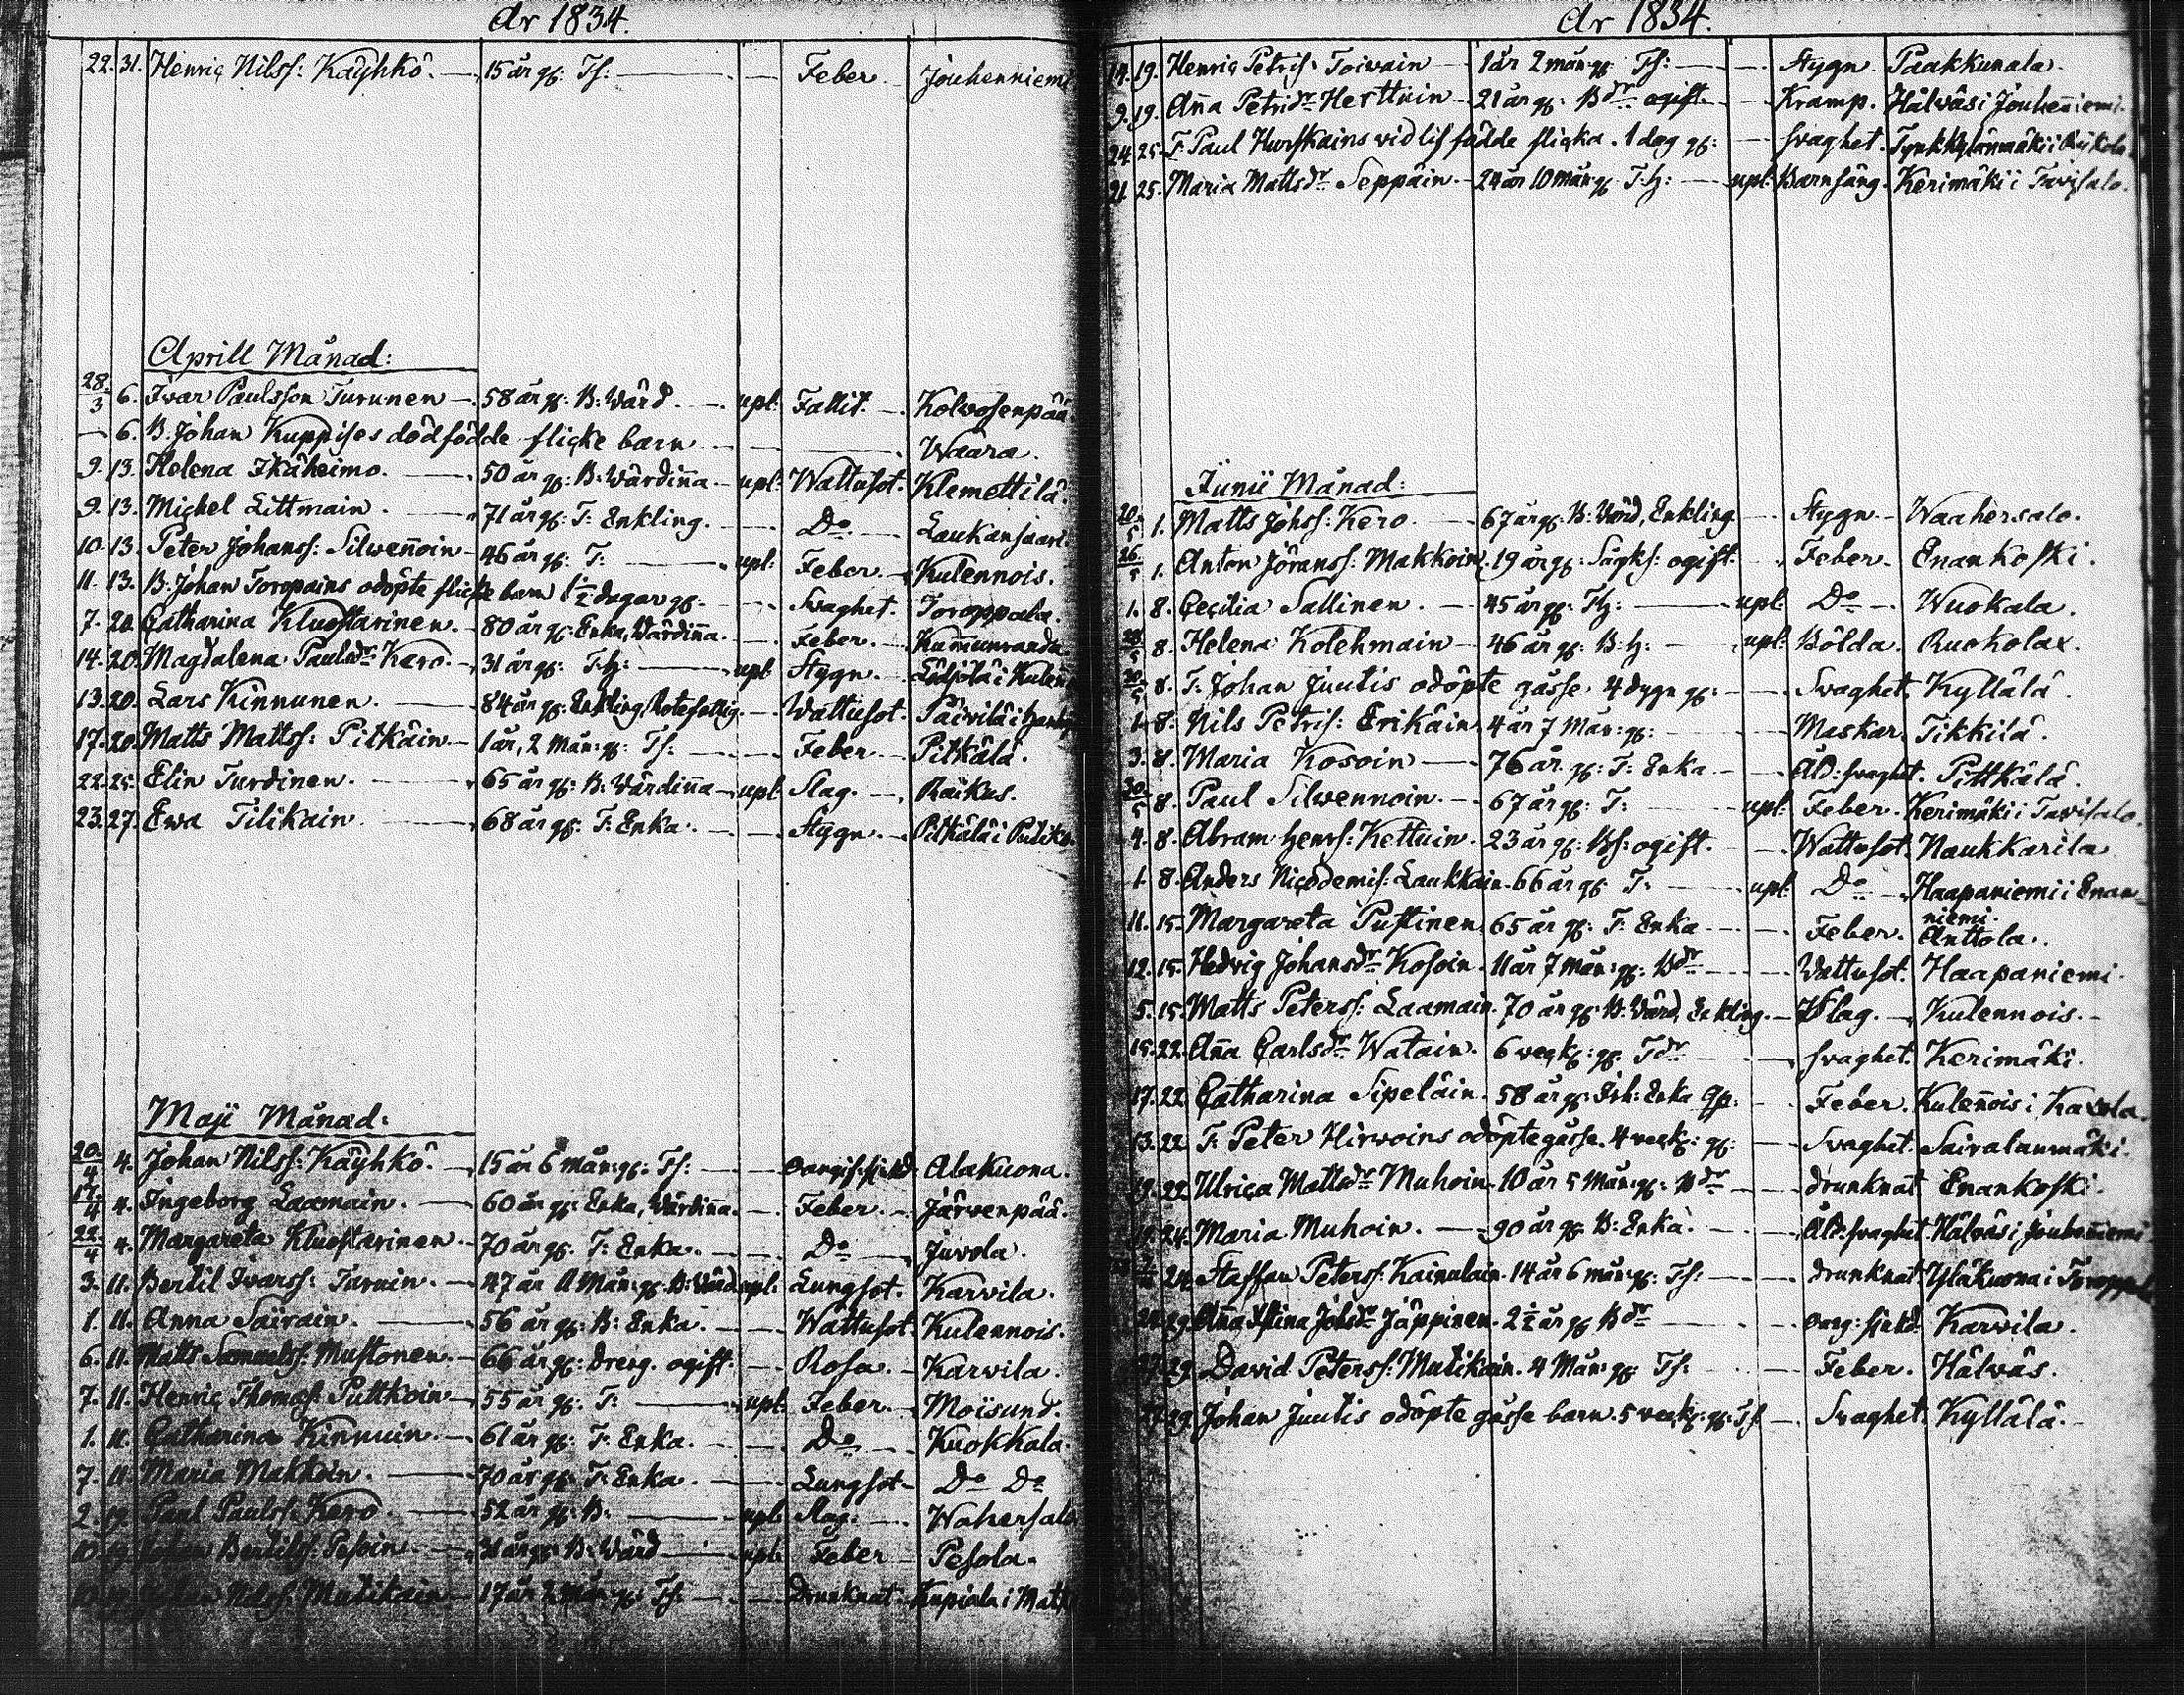 År 1834.
22. 31. Henric Nilss: Käyhkö. 15 år gl: Ts: Feber. Jouhenniemi
Aprill Månad:
28/3 6. Ivar Paulsson Turunen 58 år gl: B: Wärd upl: Fallit. Kolvosenpää
6. B. Johan Kuppises dödfödde flicke barn Waara.
9. 13. Helena Ikäheimo. 50 år gl: B: Wärdiña upl: Wattusot. Klemettilä.
9. 13. Michel Littmain. 71 år gl: T: Enkling. Do Laukansaari.
10. 13. Peter Johanss: Silweñoin 46 år gl: T: upl: Feber. Kulennois.
11. 13. B: Johan Toropains odöpte flicke barn 1½ dagar gl: Svaghet. Toroppala.
7. 20. Catharina Kluostarinen. 80 år gl: Enka, Wärdiña. Feber.
14. 20. Magdalena Paulsdr Kero 31 år gl: T:h: upl Stygn.
13. 20. Lars Kinnunen. 84 år gl: Enkling, Rotefattig. Wattusot. Päivilä i
17. 20. Matts Mattss: Pitkäin 1 år, 2 Mån: gl: Ts: Feber. Pitkälä.
22. 25. Elin Turdinen. 65 år gl: B: Wärdiña upl: Slag. Räikus.
23. 27. Ewa Tilikain 68 år gl: T: Enka. Stygn. Pitkälä i
Maji Månad:
20/4 4. Johan Nilss: Käyhkö. 15 år 6 mån: gl: Ts: Alakuona.
17/4 4. Ingeborg Laamain. 60 år gl: Enka, Wärdiña. Feber. Järvenpää.
22/4 4. Margareta Kluostarinen 70 år gl: T: Enka. Do Juvola.
3. 11. Bertil Ivarss: Taruin. 47 år 11 Mån: gl: B: Wärd upl: Lungsot. Karvila.
1. 11. Anna Säirain. 56 år gl: B: Enka. Wattusot. Kulennois.
6. 11. Matts Samuelss: Mustonen 66 år gl: Dreng. ogift. Rosa. Karvila.
7. 11. Henric Thomas: Puttkoin 55 år gl: T: upl: Feber. Moisund.
1. 11. Catharina Kinnuin. 61 år gl: T: Enka. Do Kuokkala.
7. 11. Maria Makkoin. 70 år gl: T: Enka. Lungsot Do Do
2. 19. Paul Paulss: Kero 52 år gl: B: upl: Slag. Wahersalo
10. 19. Johan Bertilss: Pesoin år gl: B: Wärd upl: Feber Pesola.
10. 19. Johan Nilss: Mutikain 17 år 2 Mån: gl: Ts: Drunknat.
År 1834.
14. 19. Henric Petris: Toivain 1 år 2 mån: gl: Ts: Stygn. Paakkunala.
9. 19. Aña Petridr Herttuin 21 år gl: Bdr ogift. Kramp. Hälväs i Jouheñiemi.
24. 25. T: Paul Hurskains vid lif födde flicka. 1 dag gl: svaghet.
21. 25. Maria Mattsdr Seppäin. 24 år 10 mån: gl: T:h: upl: Barnsäng. Kerimäki i Tavisalo.
Junii Månad:
20/5 1. Matts Johss: Kero 67 år gl: B: Wärd, Enkling. Stygn Waahersalo.
26/5 1. Anton Jöranss: Makkoin 19 år gl: ogift. Feber. Enankoski.
1. 8. Cecilia Sallinen. 45 år gl: Th: upl: Do Wuokala.
28/5 8. Helena Kolehmain 46 år gl: B:h: upl: Bölda. Ruokolax.
30/5 8. T: Johan Juutis odöpte gosse. 4 dygn gl: Svaghet. Kyllälä.
1. 8. Nils Petris: Erikäin 4 år 7 Mån: gl: Maskar. Tikkilä.
3. 8. Maria Kosoin 76 år gl: T: Enka Åld: svaghet. Pittkälä.
30/5 8. Paul Silwennoin. 67 år gl: T: upl: Feber. Kerimäki i Tavisalo.
4. 8. Abram Henrs: Kettuin. 23 år gl: Bs: ogift. Wattusot. Naukkarila
1. 8. Anders Nicodemis: Laukkain. 66 år gl: T: upl: Do Haapaniemi i Enan-
niemi.
11. 15. Margareta Pustinen 65 år gl: T: Enka Feber. Anttola.
12. 15. Hedvig Johansdr Kosoin. 11 år 7 Mån: gl: Bdr Wattusot. Haapaniemi.
5. 15. Matts Peterss: Laamain. 70 år gl: B: Wärd, Enkling. Slag. Kulennois.
15. 22. Aña Carlsdr Watain. 6 veck: gl: Tdr svaghet. Kerimäki.
17. 22. Catharina Sipeläin. 58 år gl: Enka Feber. Kuleñois i
13. 22. T: Peter Hirvoins odöpte gosse. 4 veck: gl: Svaghet. Sairalanmäki.
19. 22. Ulrica Mattsdr Muhoin. 10 år 5 Mån: gl: Bdr drunknat Enankoski.
19. 24. Maria Muhoin. 90 år gl: B: Enka. Åld: svaghet. Hälväs i Jouheñiemi
24. Staffan Peterss: Kainulain. 14 år 6 mån: gl: Ts: drunknat. Yläkuona i
24. 29. Aña Stina Johsdr Jäppinen. 2½ år gl: Bdr Karvila.
27. 29. David Peterss: Mutikain. 4 Mån: gl: Ts: Feber. Hälväs.
27. 29. Johan Juutis odöpte gosse barn. 5 veck: gl: Ts Svaghet. Kyllälä.